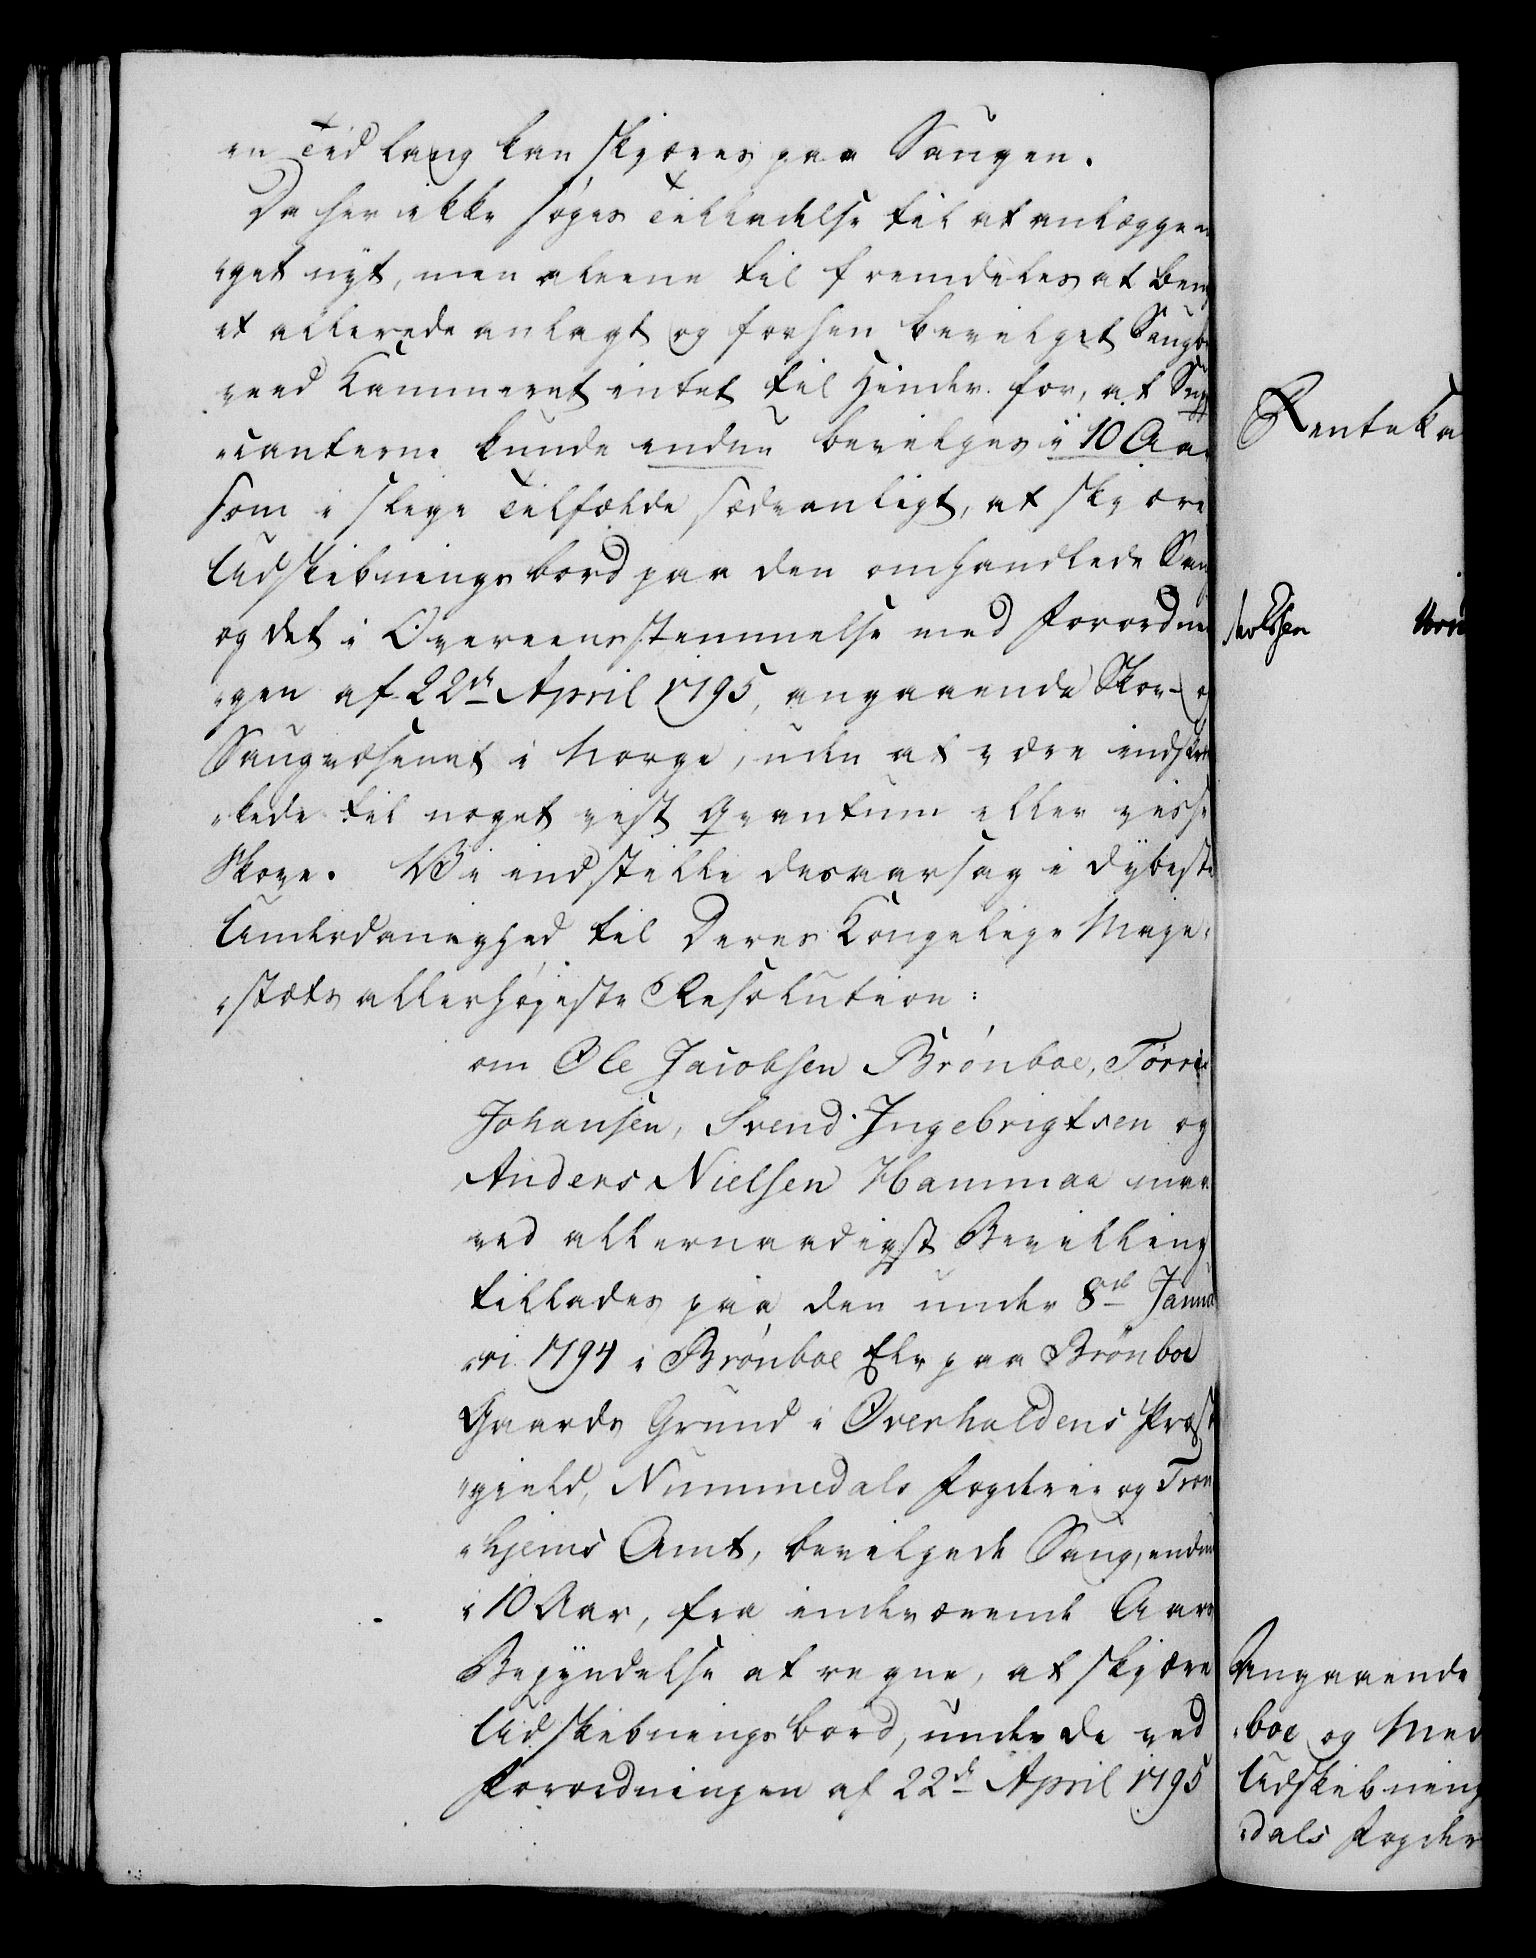 en Tid lang kan skjæres paa Saugen.
Da her ikke søges Tilladelse til at anlægge n
„get nyt, men aleene til fremdeles at ben
et allerede anlagt og forhen bevilget Saugb
veed Kammeret intet til Hinder for, at Sup
„licanterne kunde endnu bevilges i 10 Aar
som i slige Tilfælde sædvanligt, at skjære
Udskibningsbord paa den omhandlede Sau
og det i Overeensstemmelse med Forordnin
„gen af 22de April 1795, angaaende Skov- og
Saugvæsenet i Norge, uden at være indskræn
„kede til noget vist Qvantum eller visse
Skove. Vi indstille desaarsag i dybeste
Underdanighed til Deres Kongelige Maje„
„stæts allerhøjeste Resolution:
om Ole Jacobsen Brønboe, Tørris
Johansen, Svend Ingebrigtsen og
Anders Nielsen Hammaa maa
ved allernaadigst Bevilling
tillades paa den under 8de Janua
„ri 1794 i Brønboe Elv paa Brønboe
Gaards Grund i Overhaldens Præst
„gield, Nummedals Fogderie og Tron
„hjems Amt, bevilgede Saug, endnu
i 10 Aar, fra indeværende Aars
Begyndelse at regne, at skjære
Udskibningsbord, under de ved
Forordningen af 22de April 1795
RenteKa
Angaaende
„boe og Med
Udskibning
„dals Fogder